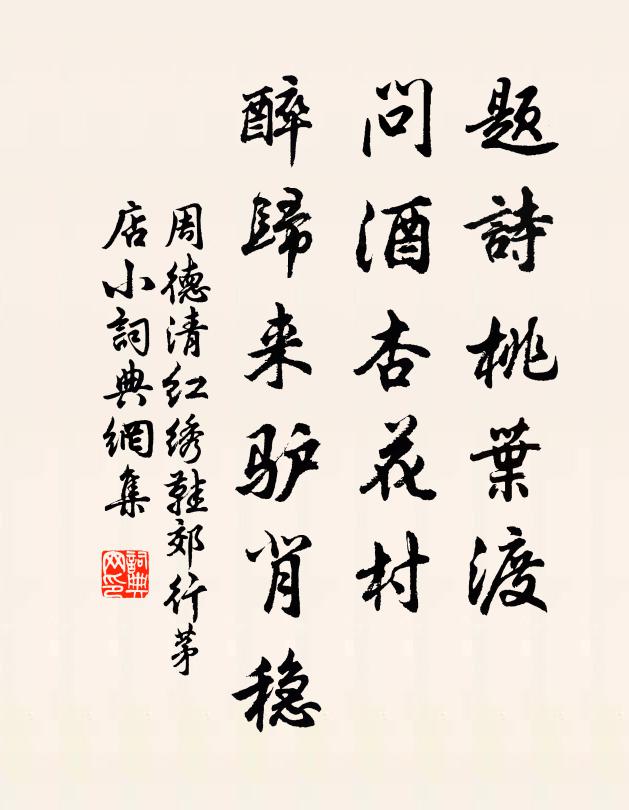 题詩桃葉渡
問酒杏花村
醉歸来驴背稳
周德清红绣鞋郊行茅
店小詞典網集
詞典
网印